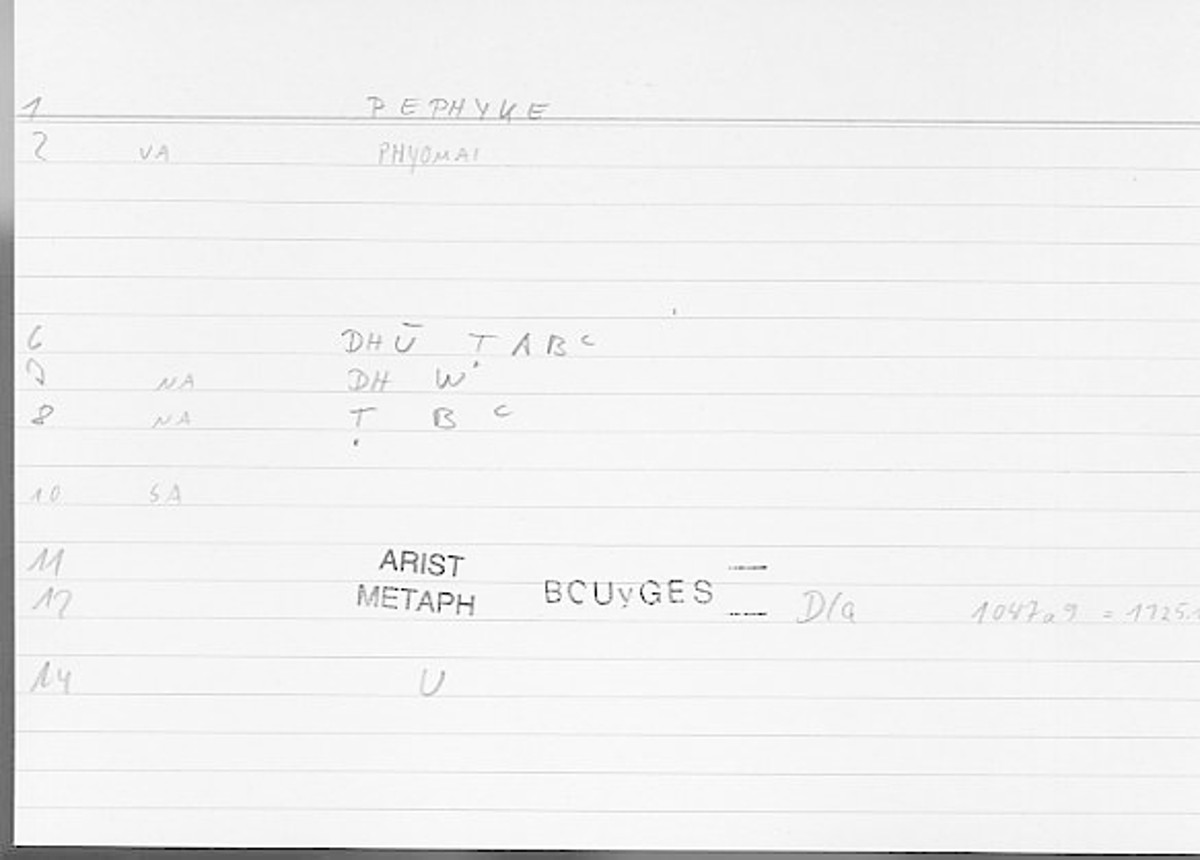 1 PEPHYKE
2 VA PHYOMAI
6 DHŪ Ṭ ABᶜ
7 NA DH W
8 NA Ṭ B ᶜ
10 SA
11 ARIST
12 METAPH BCUyGES D/a 1047a9 = 1125.1
14 U